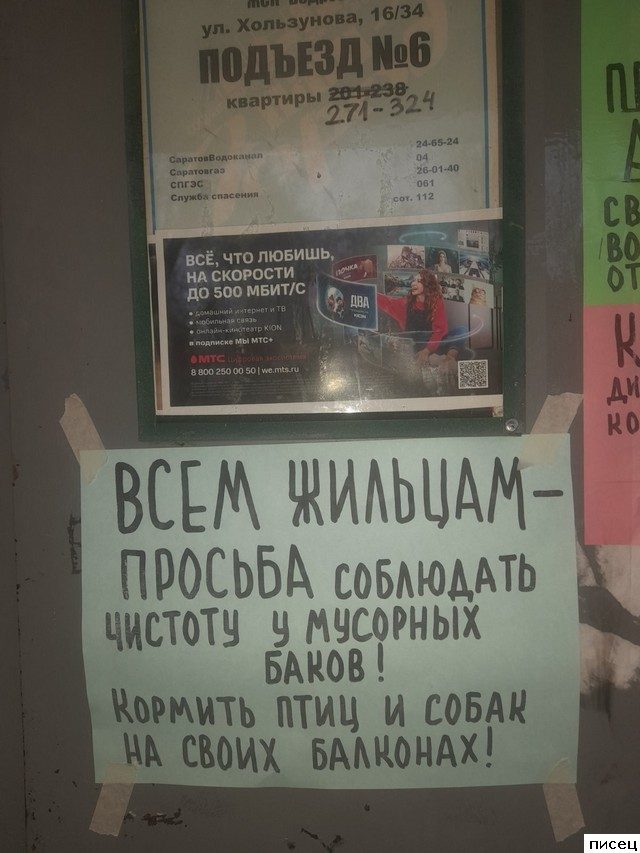 ул. Хользунова, 16/34
ПОДЪЕЗД №6
квартиры 201-238
271-324
СаратовВодоканал 24-65-24
Саратовгаз 04
СПГЭС 26-01-40
Служба спасения 061
сот. 112
ВСЁ, ЧТО ЛЮБИШЬ,
НА СКОРОСТИ
ДО 500 МБИТ/С
• домашний интернет и ТВ
• мобильная связь
• онлайн-кинотеатр KION
в подписке МЫ МТС+
МТС Цифровая экосистема
8 800 250 00 50 | we.mts.ru
ТОЧКА
ДВА
KION
ВСЕМ ЖИЛЬЦАМ –
ПРОСЬБА СОБЛЮДАТЬ
ЧИСТОТУ У МУСОРНЫХ
БАКОВ!
КОРМИТЬ ПТИЦ И СОБАК
НА СВОИХ БАЛКОНАХ!
СВ
ВО
ОТ
К
ДИ
КО
писец